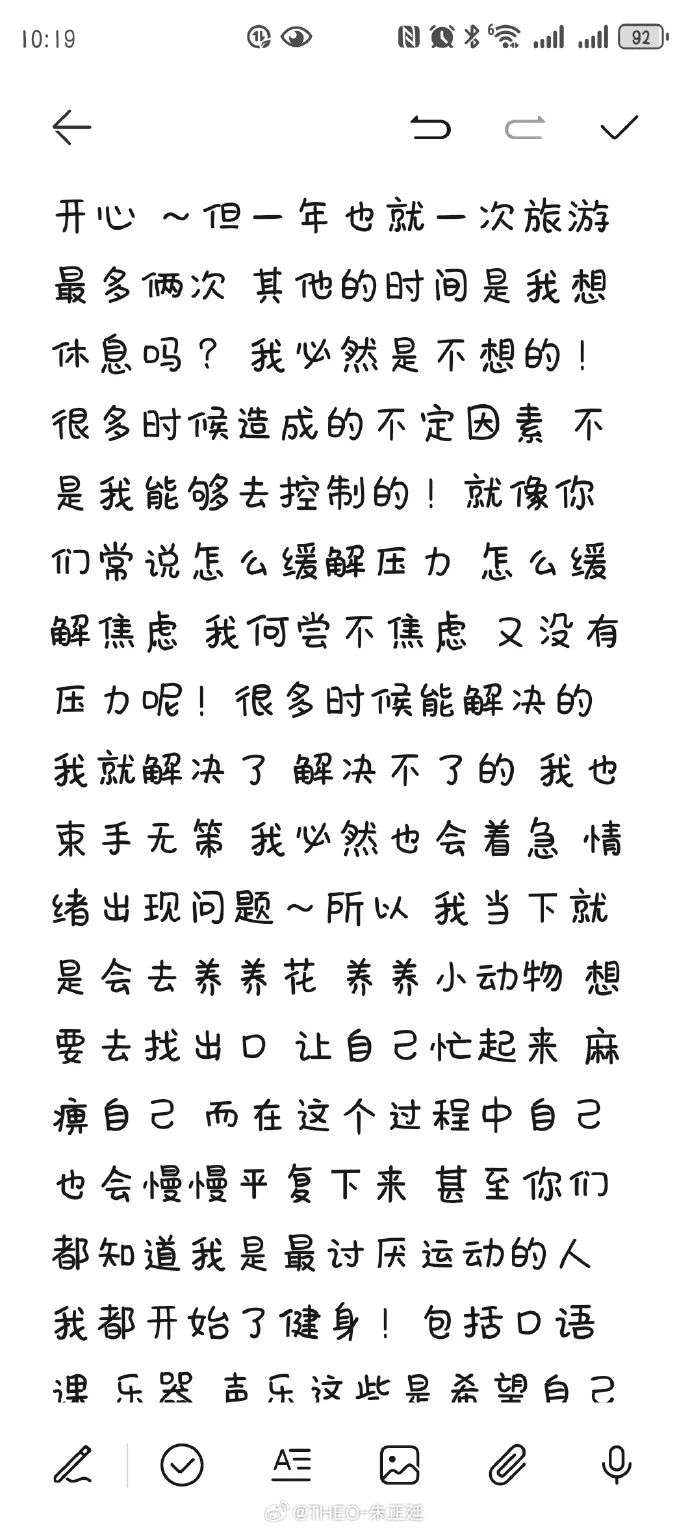 10:19
6
92
开心 ～但一年也就一次旅游
最多俩次 其他的时间是我想
休息吗？ 我必然是不想的！
很多时候造成的不定因素 不
是我能够去控制的！ 就像你
们常说怎么缓解压力 怎么缓
解焦虑 我何尝不焦虑 又没有
压力呢！ 很多时候能解决的
我就解决了 解决不了的 我也
束手无策 我必然也会着急 情
绪出现问题～所以 我当下就
是会去养养花 养养小动物 想
要去找出口 让自己忙起来 麻
痹自己 而在这个过程中自己
也会慢慢平复下来 甚至你们
都知道我是最讨厌运动的人
我都开始了健身！ 包括口语
课 乐器 声乐这些是希望自己
@THEO-朱正廷